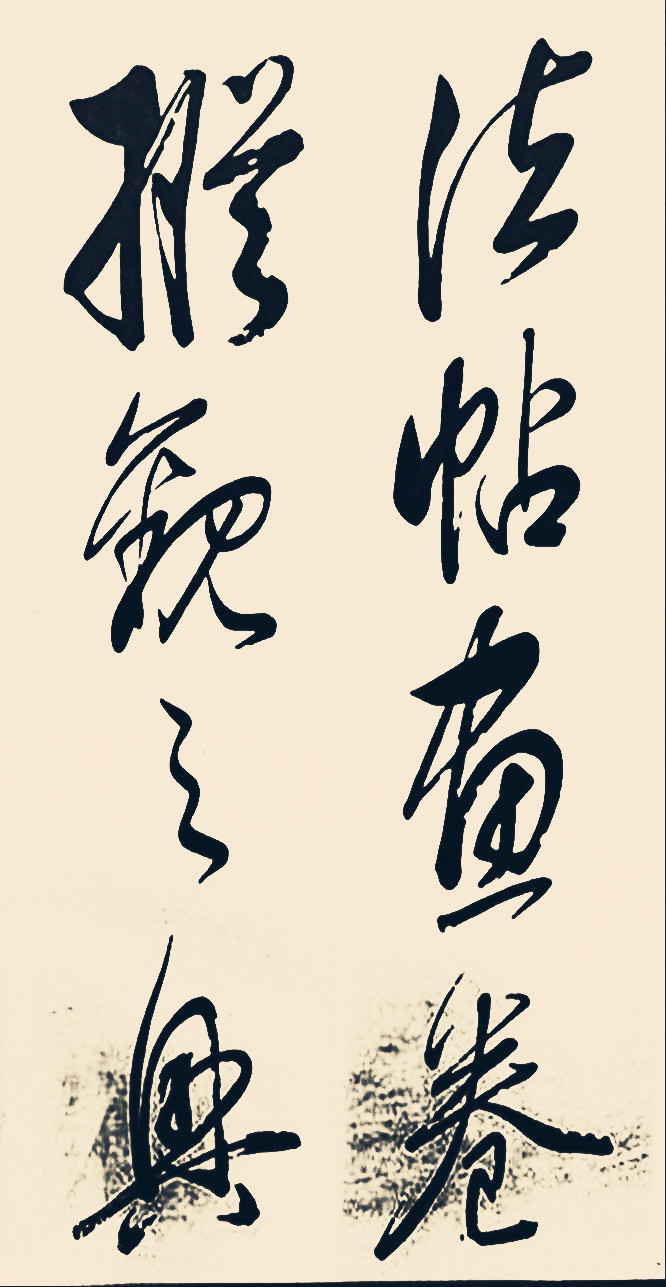 法帖畫卷
觀之興